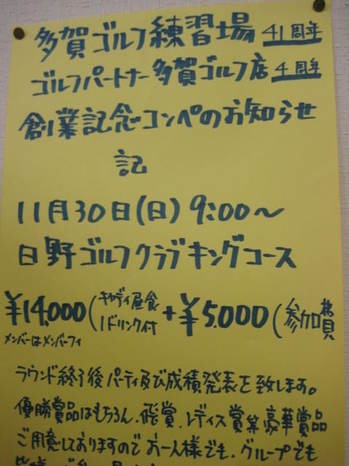 多賀ゴルフ練習場 41周年
ゴルフパートナー多賀ゴルフ店 4周年
創業記念コンペのお知らせ
記
11月30日(日) 9:00〜
日野ゴルフクラブキングコース
¥14,000(キャディ昼食 1ドリンク付 +¥5,000(参加費
メンバーはメンバーフィ
ラウンド終了後パーティ及び成績発表を致します。
優勝賞品はもちろん、飛賞、レディス賞等豪華賞品
ご用意しておりますのでお一人様でも、グループでも